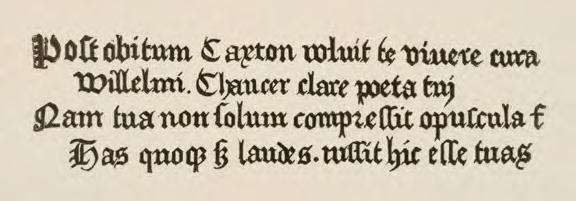 Post obitum Caxton voluit te viuere cura
Willelmi. Chaucer clare poeta tuj
Nam tua non solum compressit opuscula formis
Has quoqȝ sȝ laudes. iussit hic esse tuas